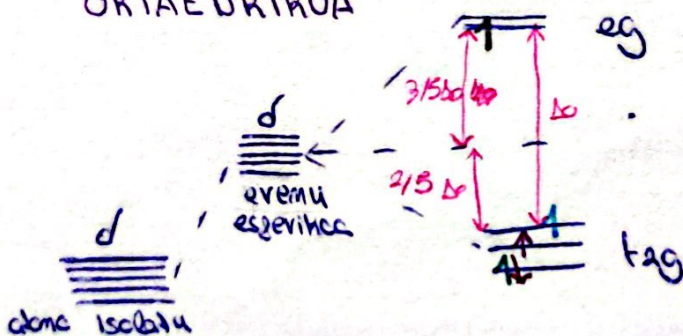 OKTAEDRIKOA
eg
3/5Δo
Δo
d
2/5 Δo
eremu
esferikoa
d
t2g
atomo isolatu